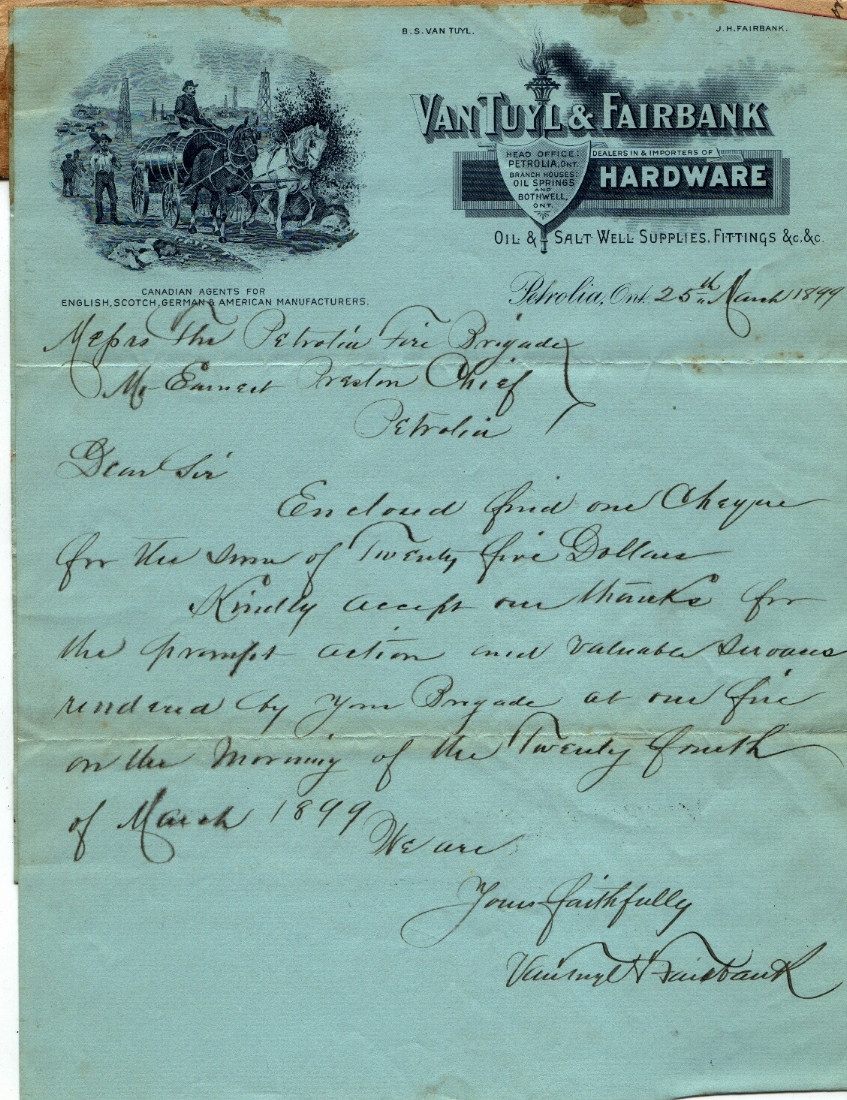 B. S. VAN TUYL.
J. H. FAIRBANK.
VAN TUYL & FAIRBANK
HEAD OFFICE:
PETROLIA, ONT.
BRANCH HOUSES:
OIL SPRINGS
AND
BOTHWELL,
ONT.
DEALERS IN & IMPORTERS OF
HARDWARE
OIL & SALT WELL SUPPLIES, FITTINGS &c. &c.
CANADIAN AGENTS FOR
ENGLISH, SCOTCH, GERMAN & AMERICAN MANUFACTURERS.
Petrolia, Ont. 25th March 1899
Messrs The Petrolia Fire Brigade
Mr Earnest Preston Chief
Petrolia
Dear Sir
Enclosed find one Cheque
for the sum of Twenty five Dollars
Kindly accept our thanks for
the prompt action and valuable services
rendered by your Brigade at our fire
on the Morning of the Twenty fourth
of March 1899
We are
Yours faithfully
VanTuyl & Fairbank